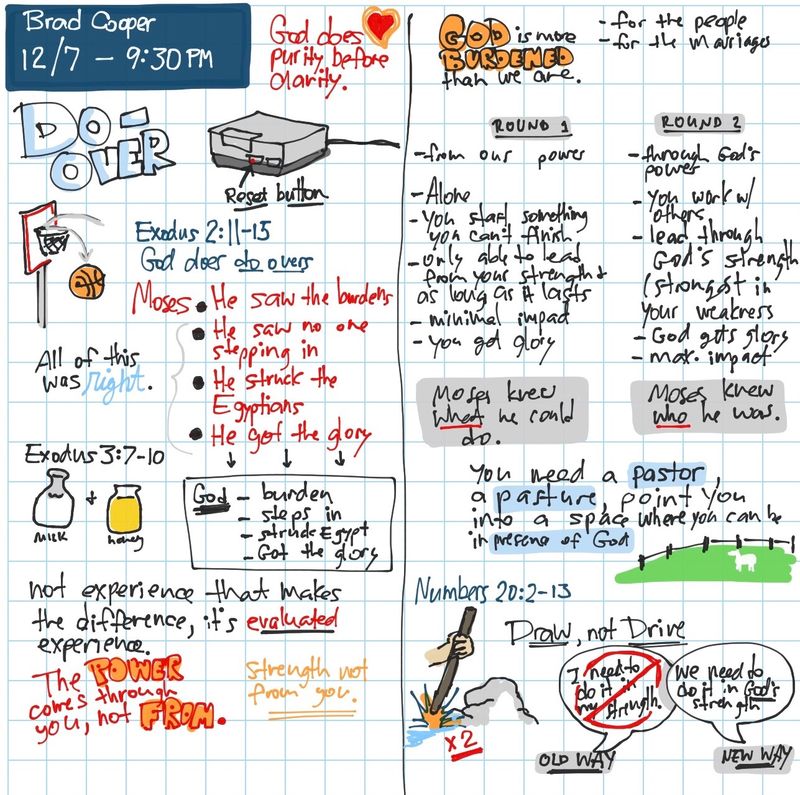 Brad Cooper
12/7 - 9:30PM
God does
purity before
clarity.
DO-
OVER
Reset button
Exodus 2:11-15
God does do overs
Moses • He saw the burdens
• He saw no one
stepping in
• He struck the
Egyptians
• He got the glory
All of this
was right.
Exodus 3:7-10
milk
+
honey
God - burden
- steps in
- struck Egypt
- Got the glory
not experience that makes
the difference, it's evaluated
experience.
The POWER
comes through
you, not FROM.
Strength not
from you.
GOD is more
BURDENED
than we are.
- for the people
- for the marriages
ROUND 1
- from our power
- Alone
- You start something
you can't finish.
- only able to lead
from your strength &
as long as it lasts
- minimal impact
- you get glory
Moses knew
what he could
do.
ROUND 2
- through God's
power
- you work w/
others
- lead through
God's strength
(strongest in
your weakness
- God gets glory
- max. impact
Moses knew
who he was.
You need a pastor,
a pasture, point you
into a space where you can be
in presence of God
Numbers 20:2-13
Draw, not Drive
x2
I need to
do it in
my strength.
OLD WAY
We need to
do it in God's
strength
NEW WAY